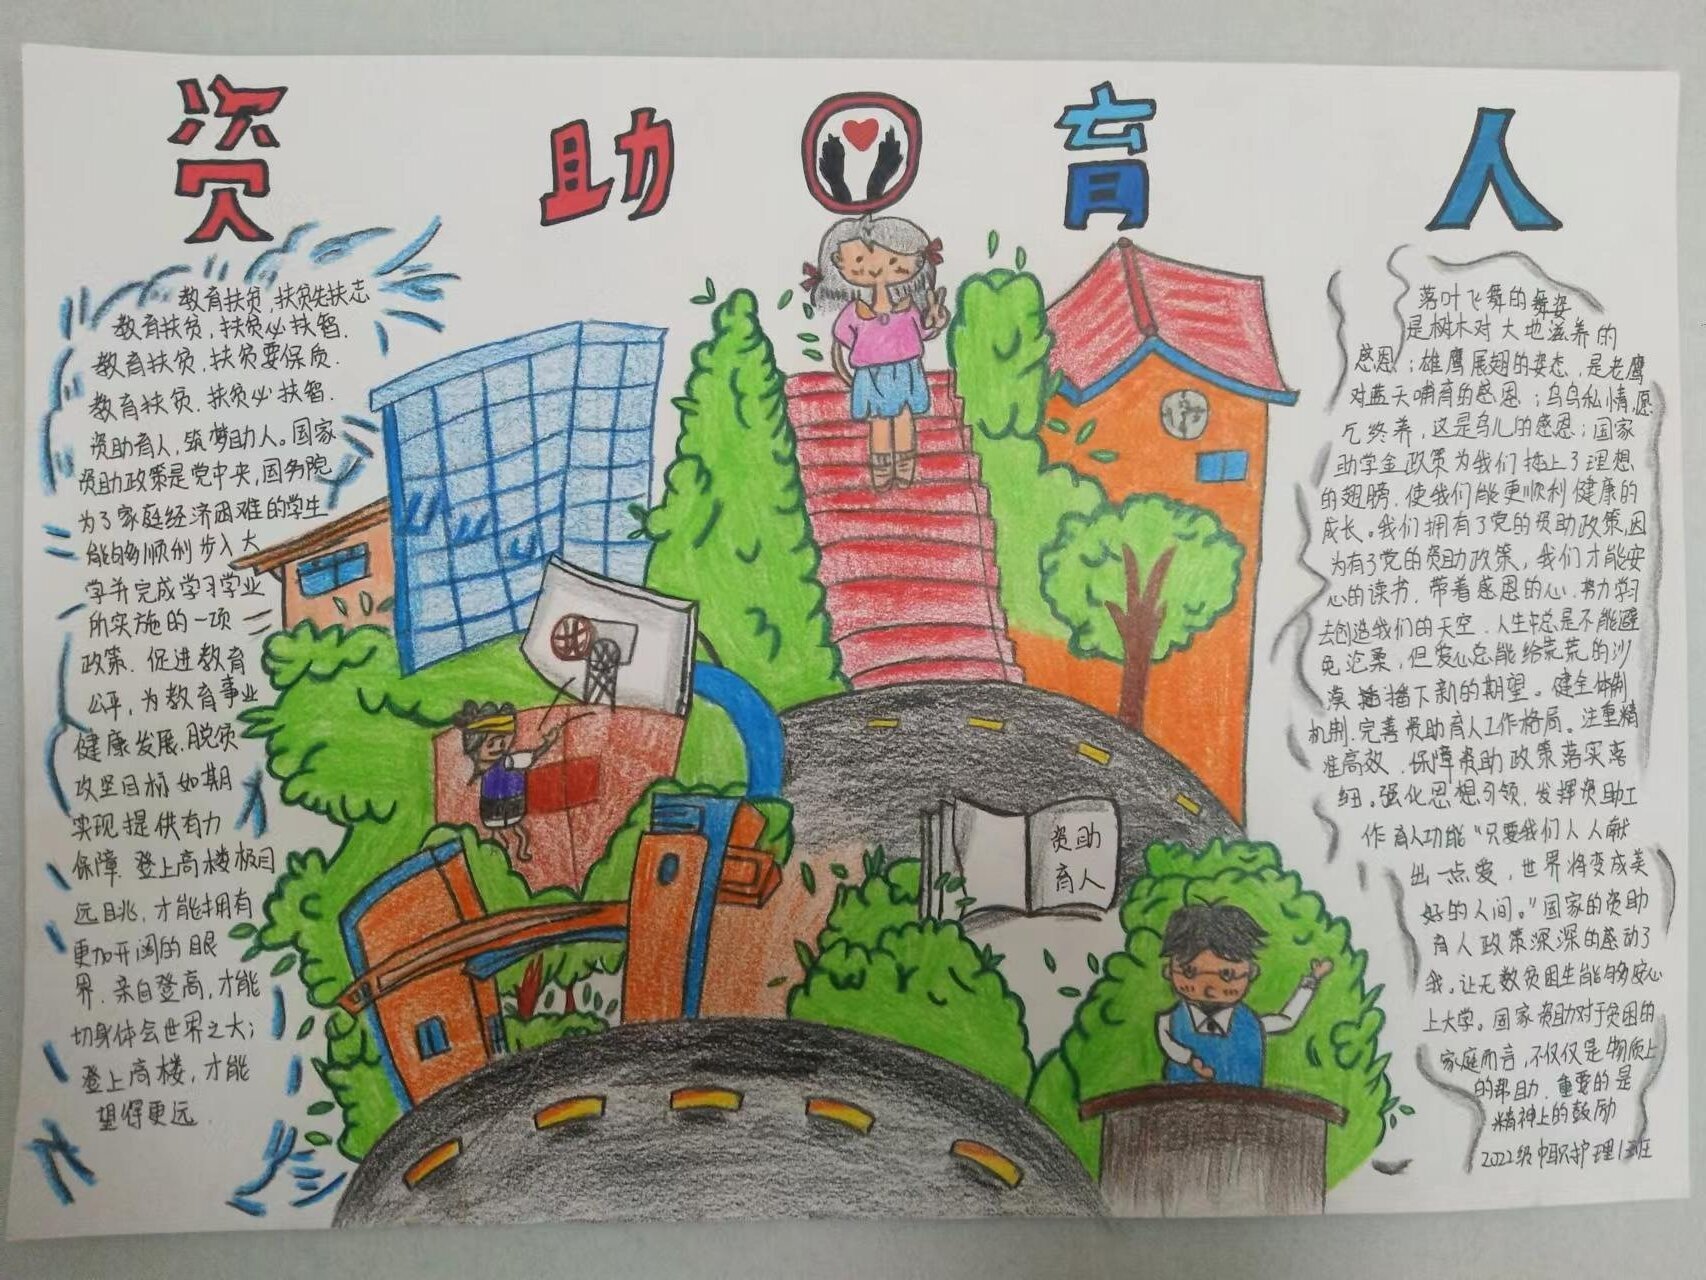 资助育人
教育扶贫,扶贫先扶志
教育扶贫,扶贫必扶智.
教育扶贫,扶贫要保质.
教育扶贫.扶贫必扶智.
资助育人,筑梦助人。国家
资助政策是党中央,国务院
为了家庭经济困难的学生
能够顺利步入大
学并完成学习学业
所实施的一项
政策.促进教育
公平,为教育事业
健康发展.脱贫
攻坚目标如期
实现提供有力
保障.登上高楼极目
远眺,才能拥有
更加开阔的眼
界.亲自登高,才能
切身体会世界之大;
登上高楼,才能
望得更远.
资助
育人
落叶飞舞的舞姿
是树木对大地滋养的
感恩;雄鹰展翅的姿态,是老鹰
对蓝天哺育的感恩;乌鸟私情,愿
乞终养,这是鸟儿的感恩;国家
助学金政策为我们插上了理想
的翅膀.使我们能更顺利健康的
成长。我们拥有了党的资助政策,因
为有了党的资助政策,我们才能安
心的读书.带着感恩的心.努力学习
去创造我们的天空.人生中总是不能避
免沧桑,但爱心总能给荒荒的沙
漠播下新的期望。健全体制
机制.完善资助育人工作格局。注重精
准高效.保障资助政策落实落
细。强化思想引领.发挥资助工
作育人功能“只要我们人人献
出一点爱,世界将变成美
好的人间。”国家的资助
育人政策深深的感动了
我。让无数贫困生能够安心
上大学。国家资助对于贫困的
家庭而言,不仅仅是物质上
的帮助.重要的是
精神上的鼓励
2022级中职护理1班